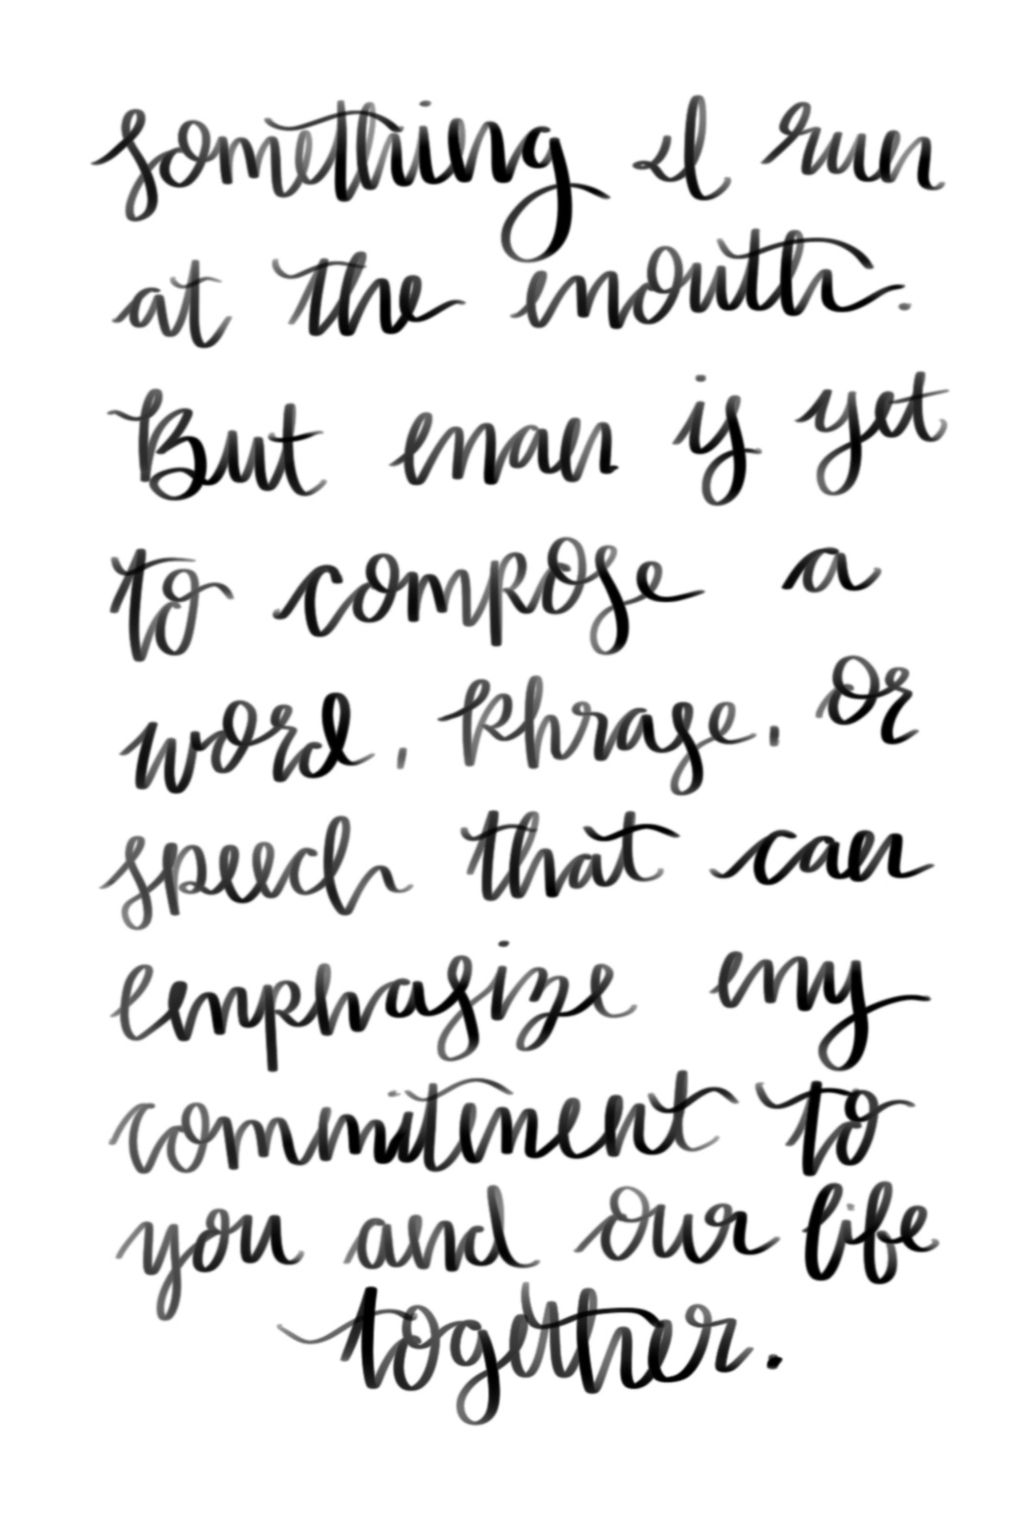 something I run
at the mouth.
But man is yet
to compose a
word, phrase, or
speech that can
emphasize my
commitment to
you and our life
together.